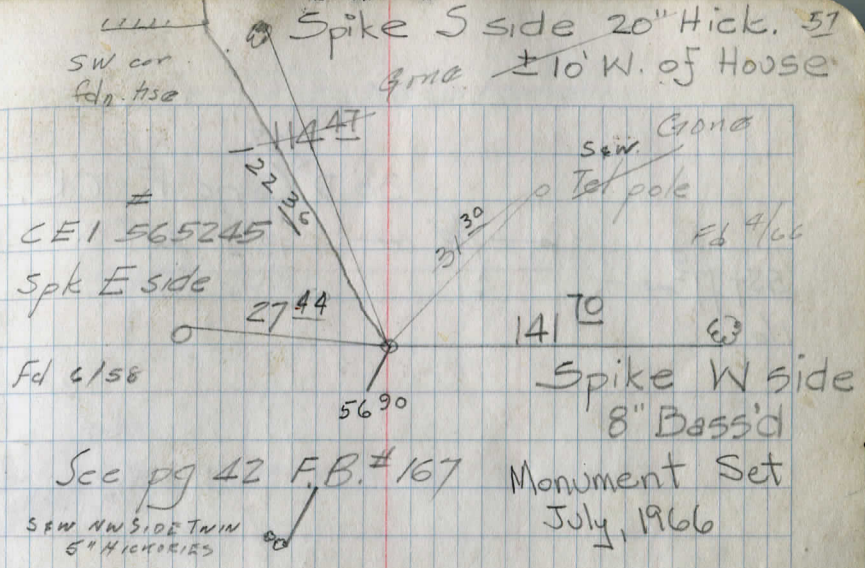 Spike S side 20" Hick. 57
± 10' W. of House
Gone
SW cor.
fdn. Hse
114 47
122 36
Gone
S&W.
Tel pole
Fd 4/66
31 30
#
CEI 565245
Spk E side
27 44
Fd 6/58
141 70
Spike W side
8" Bass'd
56 90
See pg 42 F.B. # 167
Monument Set
July, 1966
S&W NW SIDE TWIN
5" HICKORIES